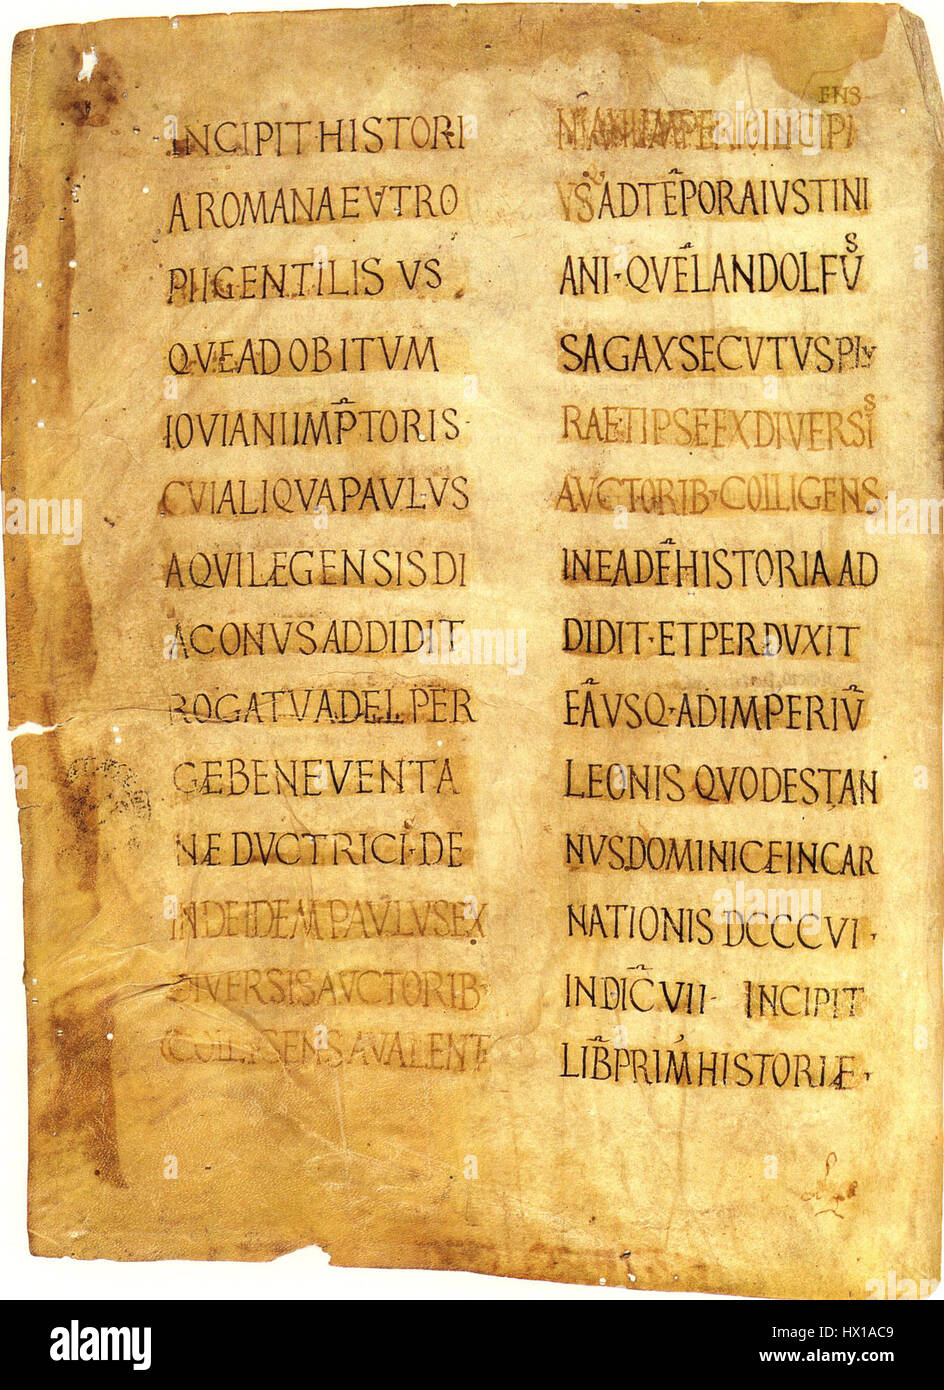 INCIPIT·HISTORI
A ROMANA EVTRO
PII GENTILIS VS
QVE AD OBITVM
IOVIANI IMP̃TORIS·
CVI ALIQVA PAVLVS
AQVILÆGENSIS DI
ACONVS ADDIDIT
ROGATV ADELPER
GÆ BENEVENTA
NÆ DVCTRICI·DE
INDE IDEM PAVLVS EX
DIVERSIS AVCTORIB·
COLLIGENS A VALENT
ENS
NIANI IMPERIO INCIPI
VS AD TẼPORA IVSTINI
ANI·QVẼ LANDOLFVS
SAGAX SECVTVS PLV
RA ET IPSE EX DIVERSIS
AVCTORIB·COLLIGENS
IN EADẼ HISTORIA AD
DIDIT·ET PERDVXIT
EÃ VSQ·AD IMPERIṼ
LEONIS QVOD EST AN
NVS DOMINICE INCAR
NATIONIS DCCCVI·
INDIC̃ VII· INCIPIT
LIB̃ PRIM' HISTORIÆ·
alamy
Image ID: HX1AC9
www.alamy.com